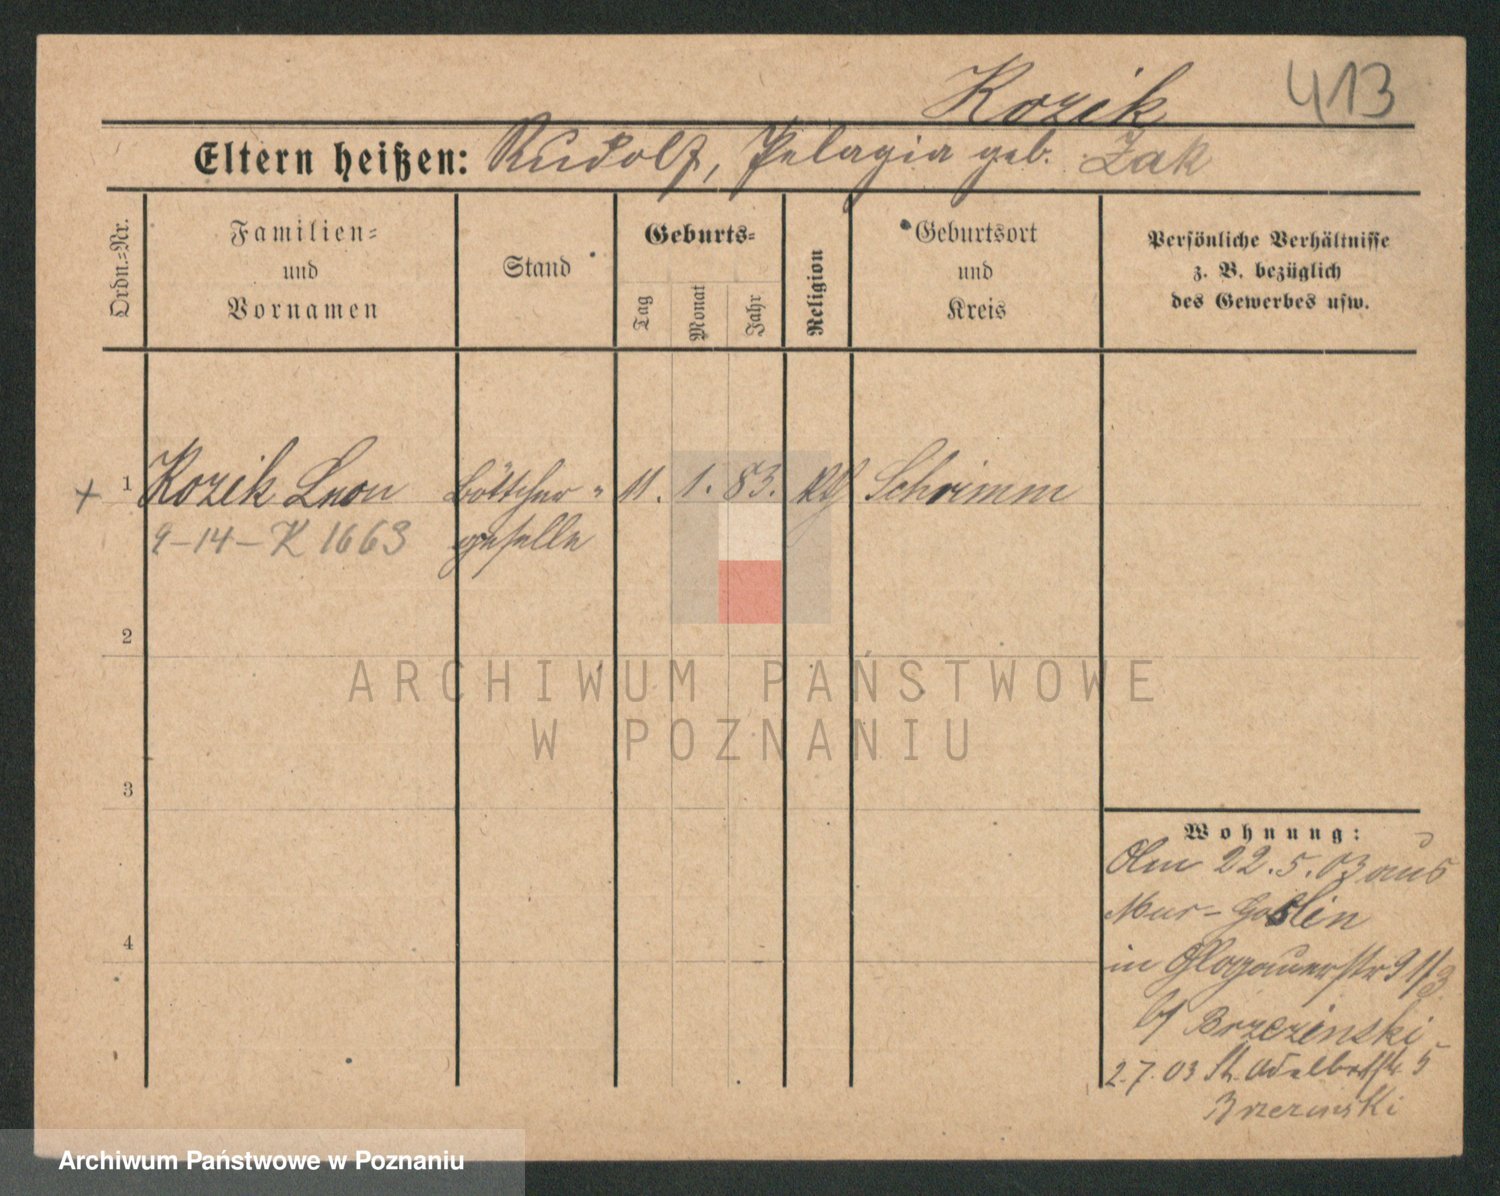 Kozik 413
Eltern heißen: Rudolf, Pelagia geb. Zak
Ordn.-Nr.
Familien=
und
Vornamen
Stand
Geburts=
Tag
Monat
Jahr
Religion
Geburtsort
und
Kreis
Persönliche Verhältnisse
z. B. bezüglich
des Gewerbes usw.
+ 1 Kozik Leon Böttcher- 11. 1. 83. Schrimm
9-14-K 1663 geselle
2
3
4
Wohnung:
22.5.03 aus
Mur-Goslin
in Glogauerstr 91/3
Brzezinski
2.7.03 St. Adalbertstr. 5
Brzezinski
ARCHIWUM PAŃSTWOWE
W POZNANIU
Archiwum Państwowe w Poznaniu